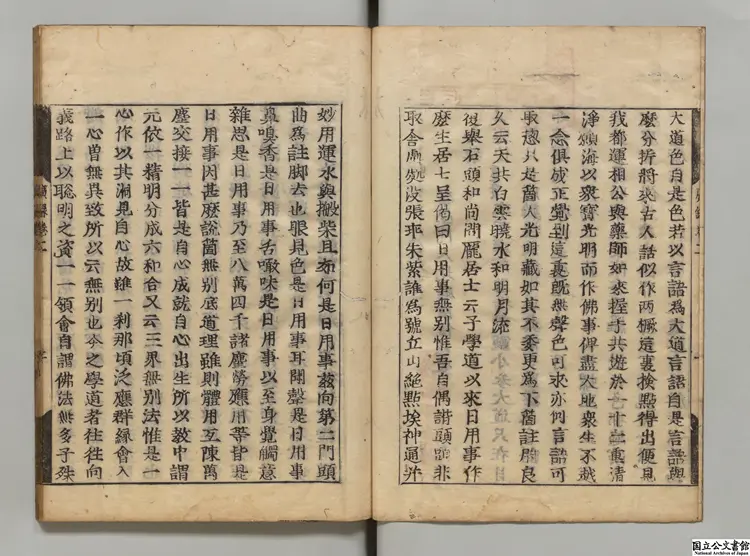 大道色自是色若以言語為大道言語自是言語與
麼分折將來古人話似作兩橛這裏撿點得出便見
我都運相公與藥師如來握手共遊於十二重清
淨願海以衆寶光明而作佛事俾盡大地衆生不越
一念俱成正覺到這裏既無聲色可求亦何言語可
取摠只是箇大光明藏如其不委更為下箇註脚良
久云天共白雲曉水和明月流
復舉石頭和尚問龐居士云子學道以來日用事作
麼生居士呈偈曰日用事無別惟吾自偶諧頭頭非
取舍處處沒張乖朱紫誰為號丘山絕點埃神通并
妙用運水與搬柴且如何是日用事玆向第二門頭
曲為註脚去也眼見色是日用事耳聞聲是日用事
鼻嗅香是日用事舌噉味是日用事以至身覺觸意
雜思是日用事乃至八萬四千諸塵勞應用等皆是
日用事因甚麼說箇無別底道理雖則體用互陳萬
塵交接一一皆是自心成就自心出生所以教中謂
元依一精明分成六和合又云三界無別法惟是一
心作以其洞見自心故雖一剎那頃泛應群緣會入
一心曽無異致所以云無別也今之學道者往往向
義路上以聰明之資一一領會自謂佛法無多子殊
国立公文書館
National Archives of Japan